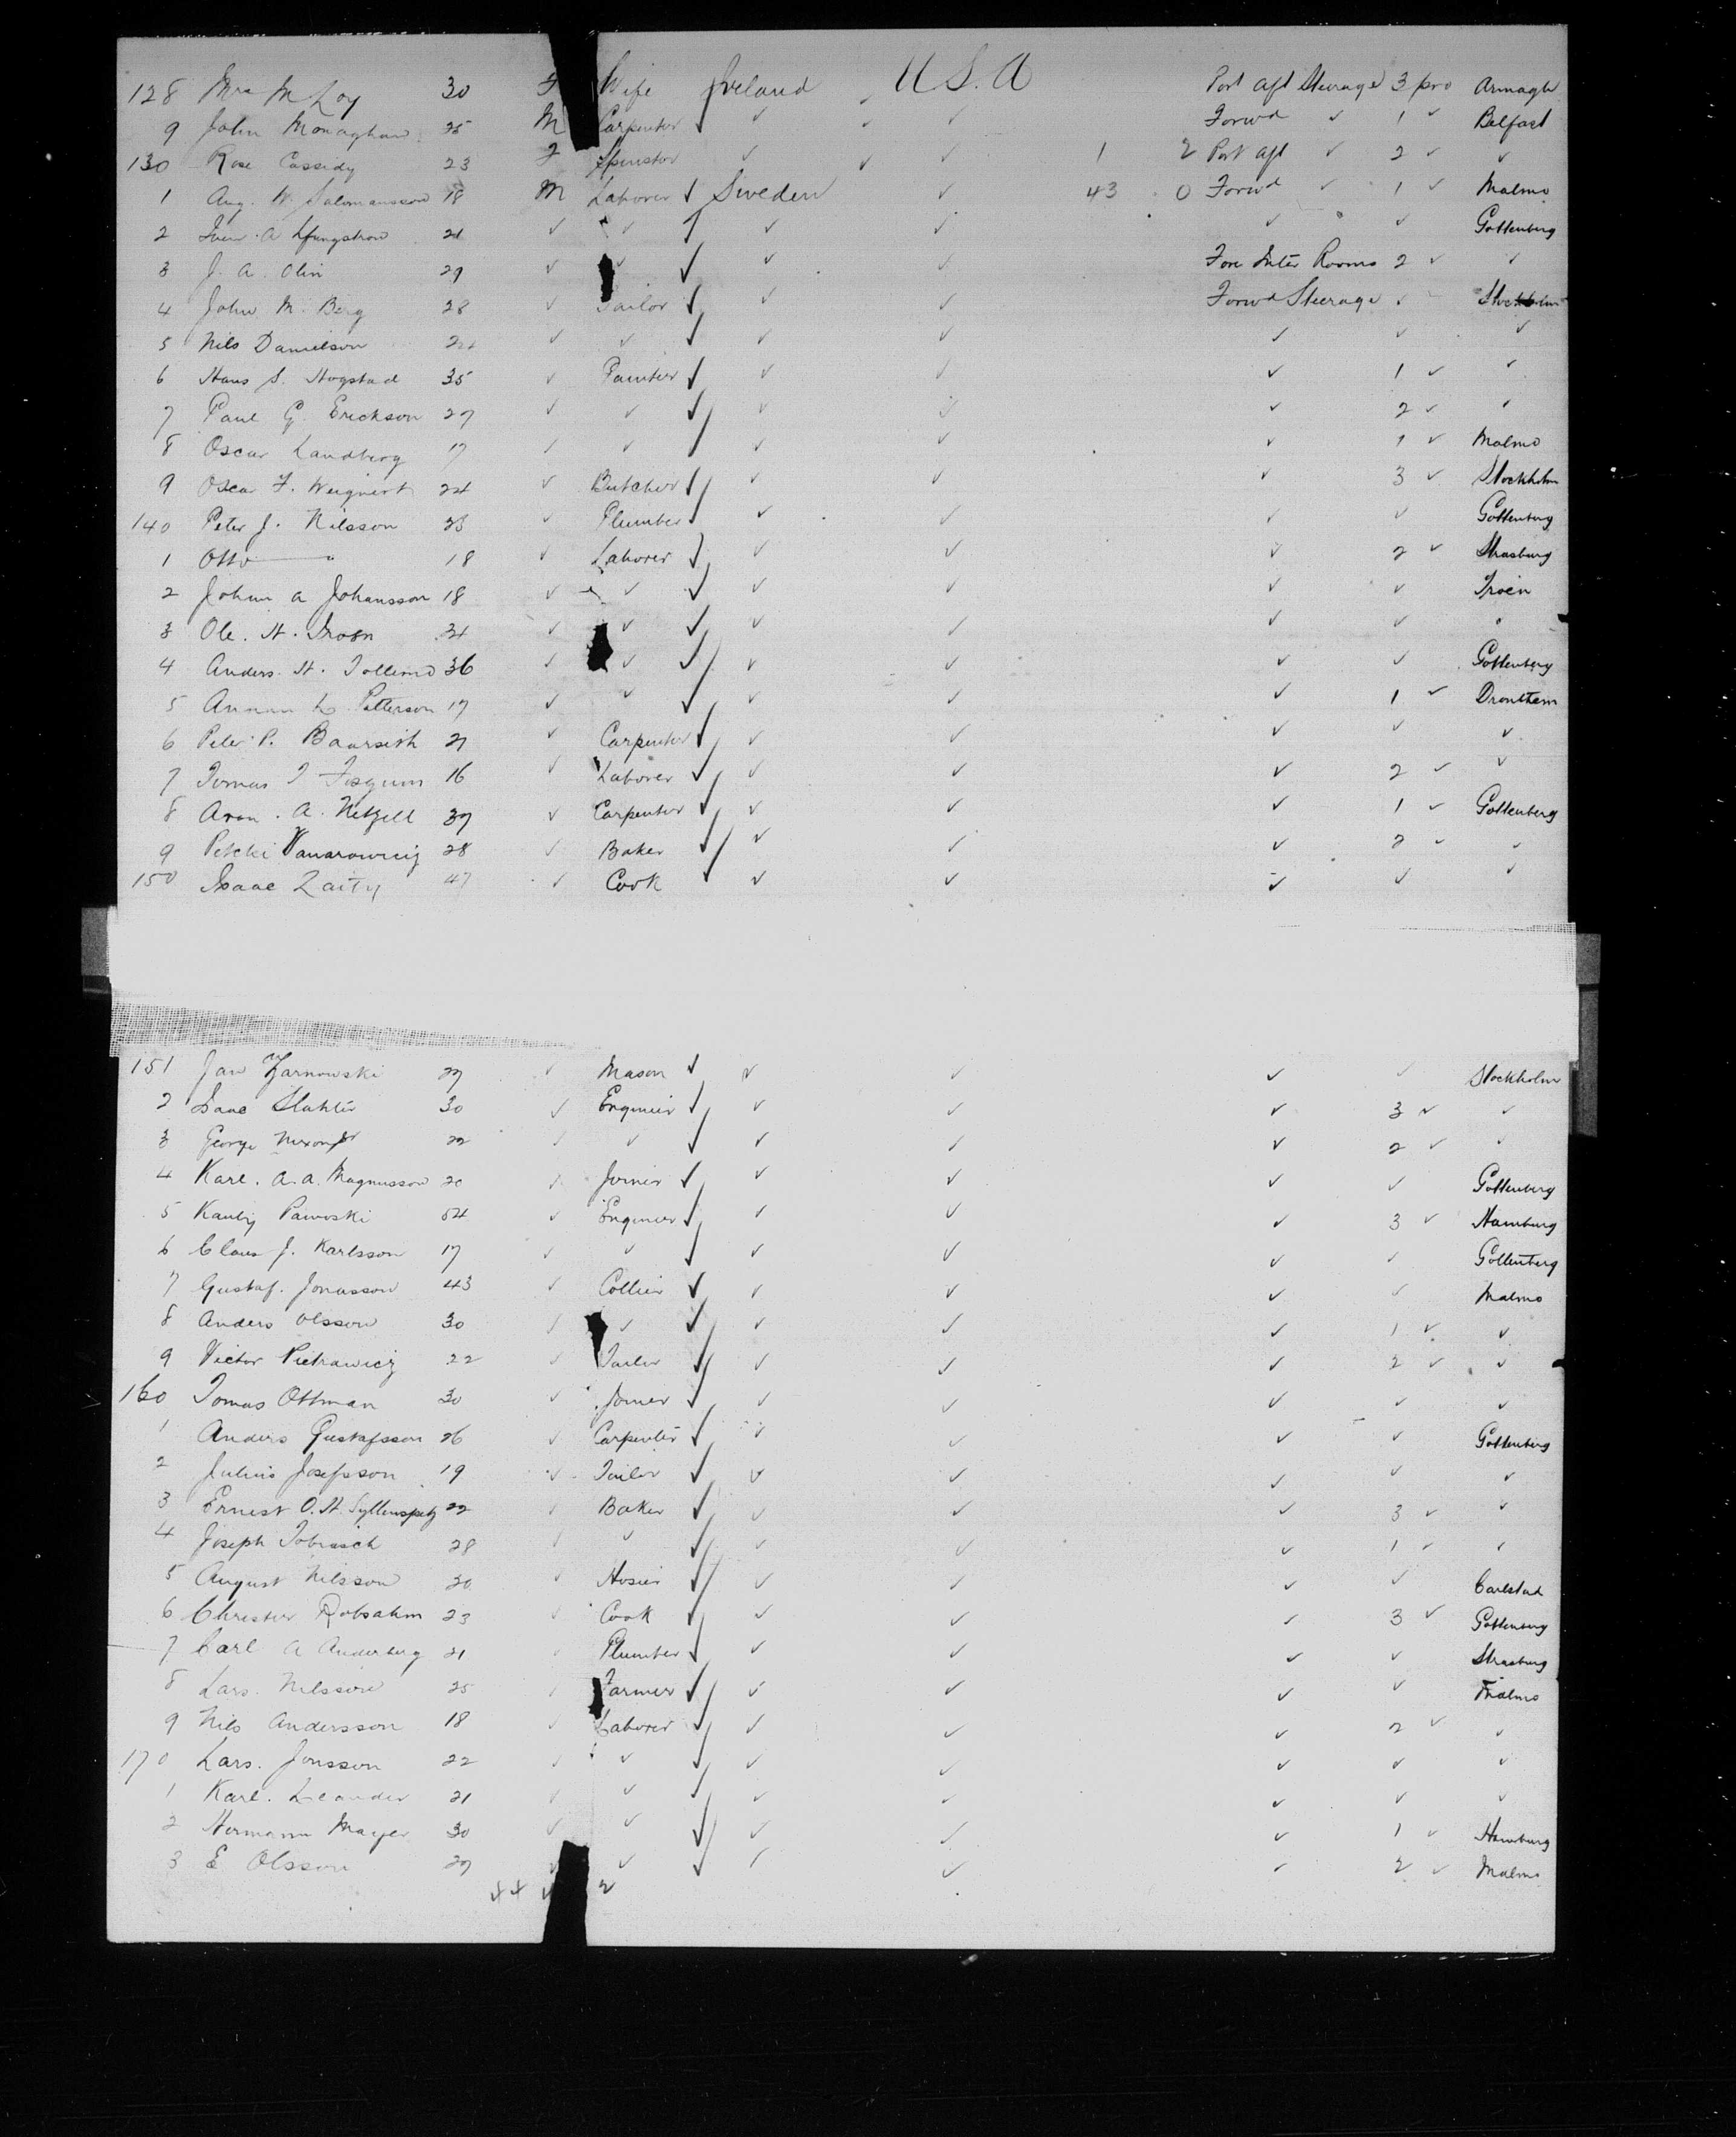 128 Mrs McLoy 30 F Wife Ireland ✓ U.S.A Port Aft Steerage 3 pro Armagh
9 John Monaghan 25 M Carpenter ✓ ✓ ✓ Forwd ✓ 1 ✓ Belfast
130 Rose Cassidy 23 F Spinster ✓ ✓ ✓ 1 2 Port Aft ✓ 2 ✓ ✓
1 Aug. W. Salomansson 18 M Laborer ✓ Sweden ✓ 43 0 Forwd ✓ 1 ✓ Malmo
2 A 21 ✓ ✓ ✓ ✓ ✓ ✓ ✓ Gottenberg
3 J. A. Olin 29 ✓ ✓ ✓ ✓ ✓ Fore Inter Rooms 2 ✓ ✓
4 John M. Berg 28 ✓ Tailor ✓ ✓ ✓ Forwd Steerage ✓ Stockholm
5 Nils Danielson ✓ ✓ ✓ ✓ ✓ ✓ ✓ ✓
6 Hans S. Hogstad 35 ✓ Painter ✓ ✓ ✓ ✓ 1 ✓ ✓
7 Paul G. Erickson 27 ✓ ✓ ✓ ✓ ✓ ✓ 2 ✓ ✓
8 Oscar Landberg 17 ✓ ✓ ✓ ✓ ✓ ✓ 1 ✓ Malmo
9 Oscar F. 24 ✓ Butcher ✓ ✓ ✓ ✓ 3 ✓ Stockholm
140 Peter J. Nilsson 23 ✓ Plumber ✓ ✓ ✓ ✓ ✓ Gottenberg
1 Otto " 18 ✓ Laborer ✓ ✓ ✓ ✓ 2 ✓ Strasburg
2 Johan A Johansson 18 ✓ ✓ ✓ ✓ ✓ ✓ ✓
3 Ole. H. ✓ ✓ ✓ ✓ ✓ ✓ ✓ "
4 Anders. H. 36 ✓ ✓ ✓ ✓ ✓ ✓ ✓ Gottenberg
5 L. Petterson 17 ✓ ✓ ✓ ✓ ✓ ✓ 1 ✓ Dronthem
6 Peter P. 27 ✓ Carpenter ✓ ✓ ✓ ✓ ✓ ✓
7 Tomas 16 ✓ Laborer ✓ ✓ ✓ ✓ 2 ✓ ✓
8 Aron. A. Netzell 37 ✓ Carpenter ✓ ✓ ✓ ✓ 1 ✓ Gottenberg
9 28 ✓ Baker ✓ ✓ ✓ ✓ 2 ✓ ✓
150 Isaac 47 ✓ Cook ✓ ✓ ✓ ✓ ✓ ✓
151 Jan Zarnowski 27 ✓ Mason ✓ ✓ ✓ ✓ ✓ Stockholm
2 Isaac 30 ✓ Engineer ✓ ✓ ✓ ✓ 3 ✓ ✓
3 George 22 ✓ ✓ ✓ ✓ ✓ ✓ 2 ✓ ✓
4 Karl. A. A. Magnusson 20 ✓ Joiner ✓ ✓ ✓ ✓ ✓ Gottenberg
5 54 ✓ Engineer ✓ ✓ ✓ ✓ 3 ✓ Hamburg
6 Claus J. Karlsson 17 ✓ ✓ ✓ ✓ ✓ ✓ ✓ Gottenberg
7 Gustaf. Jonasson 43 ✓ Collier ✓ ✓ ✓ ✓ ✓ Malmo
8 Anders Olsson 30 ✓ ✓ ✓ ✓ ✓ ✓ 1 ✓ ✓
9 Victor Pietrawicz 22 ✓ Tailor ✓ ✓ ✓ ✓ 2 ✓ ✓
160 Tomas Ottman 30 ✓ Joiner ✓ ✓ ✓ ✓ ✓ ✓
1 Anders Gustafsson 26 ✓ Carpenter ✓ ✓ ✓ ✓ ✓ Gottenberg
2 Julius Josefsson 19 ✓ Tailor ✓ ✓ ✓ ✓ ✓ ✓
3 Ernest O. H. 22 ✓ Baker ✓ ✓ ✓ ✓ 3 ✓ ✓
4 Joseph 28 ✓ ✓ ✓ ✓ ✓ ✓ 1 ✓ ✓
5 August Nilsson 30 ✓ Hosier ✓ ✓ ✓ ✓ ✓ Carlstad
6 Christer Robsahm 23 ✓ Cook ✓ ✓ ✓ ✓ 3 ✓ Gottenberg
7 Carl A Anderberg 21 ✓ Plumber ✓ ✓ ✓ ✓ ✓ Strasburg
8 Lars. Nilsson 25 ✓ Farmer ✓ ✓ ✓ ✓ ✓ Malmo
9 Nils Andersson 18 ✓ Laborer ✓ ✓ ✓ ✓ 2 ✓ ✓
170 Lars. Jonsson 22 ✓ ✓ ✓ ✓ ✓ ✓ ✓ ✓
1 Karl. Leander 21 ✓ ✓ ✓ ✓ ✓ ✓ ✓ ✓
2 Hermann Mayer 30 ✓ ✓ ✓ ✓ ✓ ✓ 1 ✓ Hamburg
3 E Olsson 27 ✓ ✓ ✓ ✓ ✓ ✓ 2 ✓ Malmo
44 2